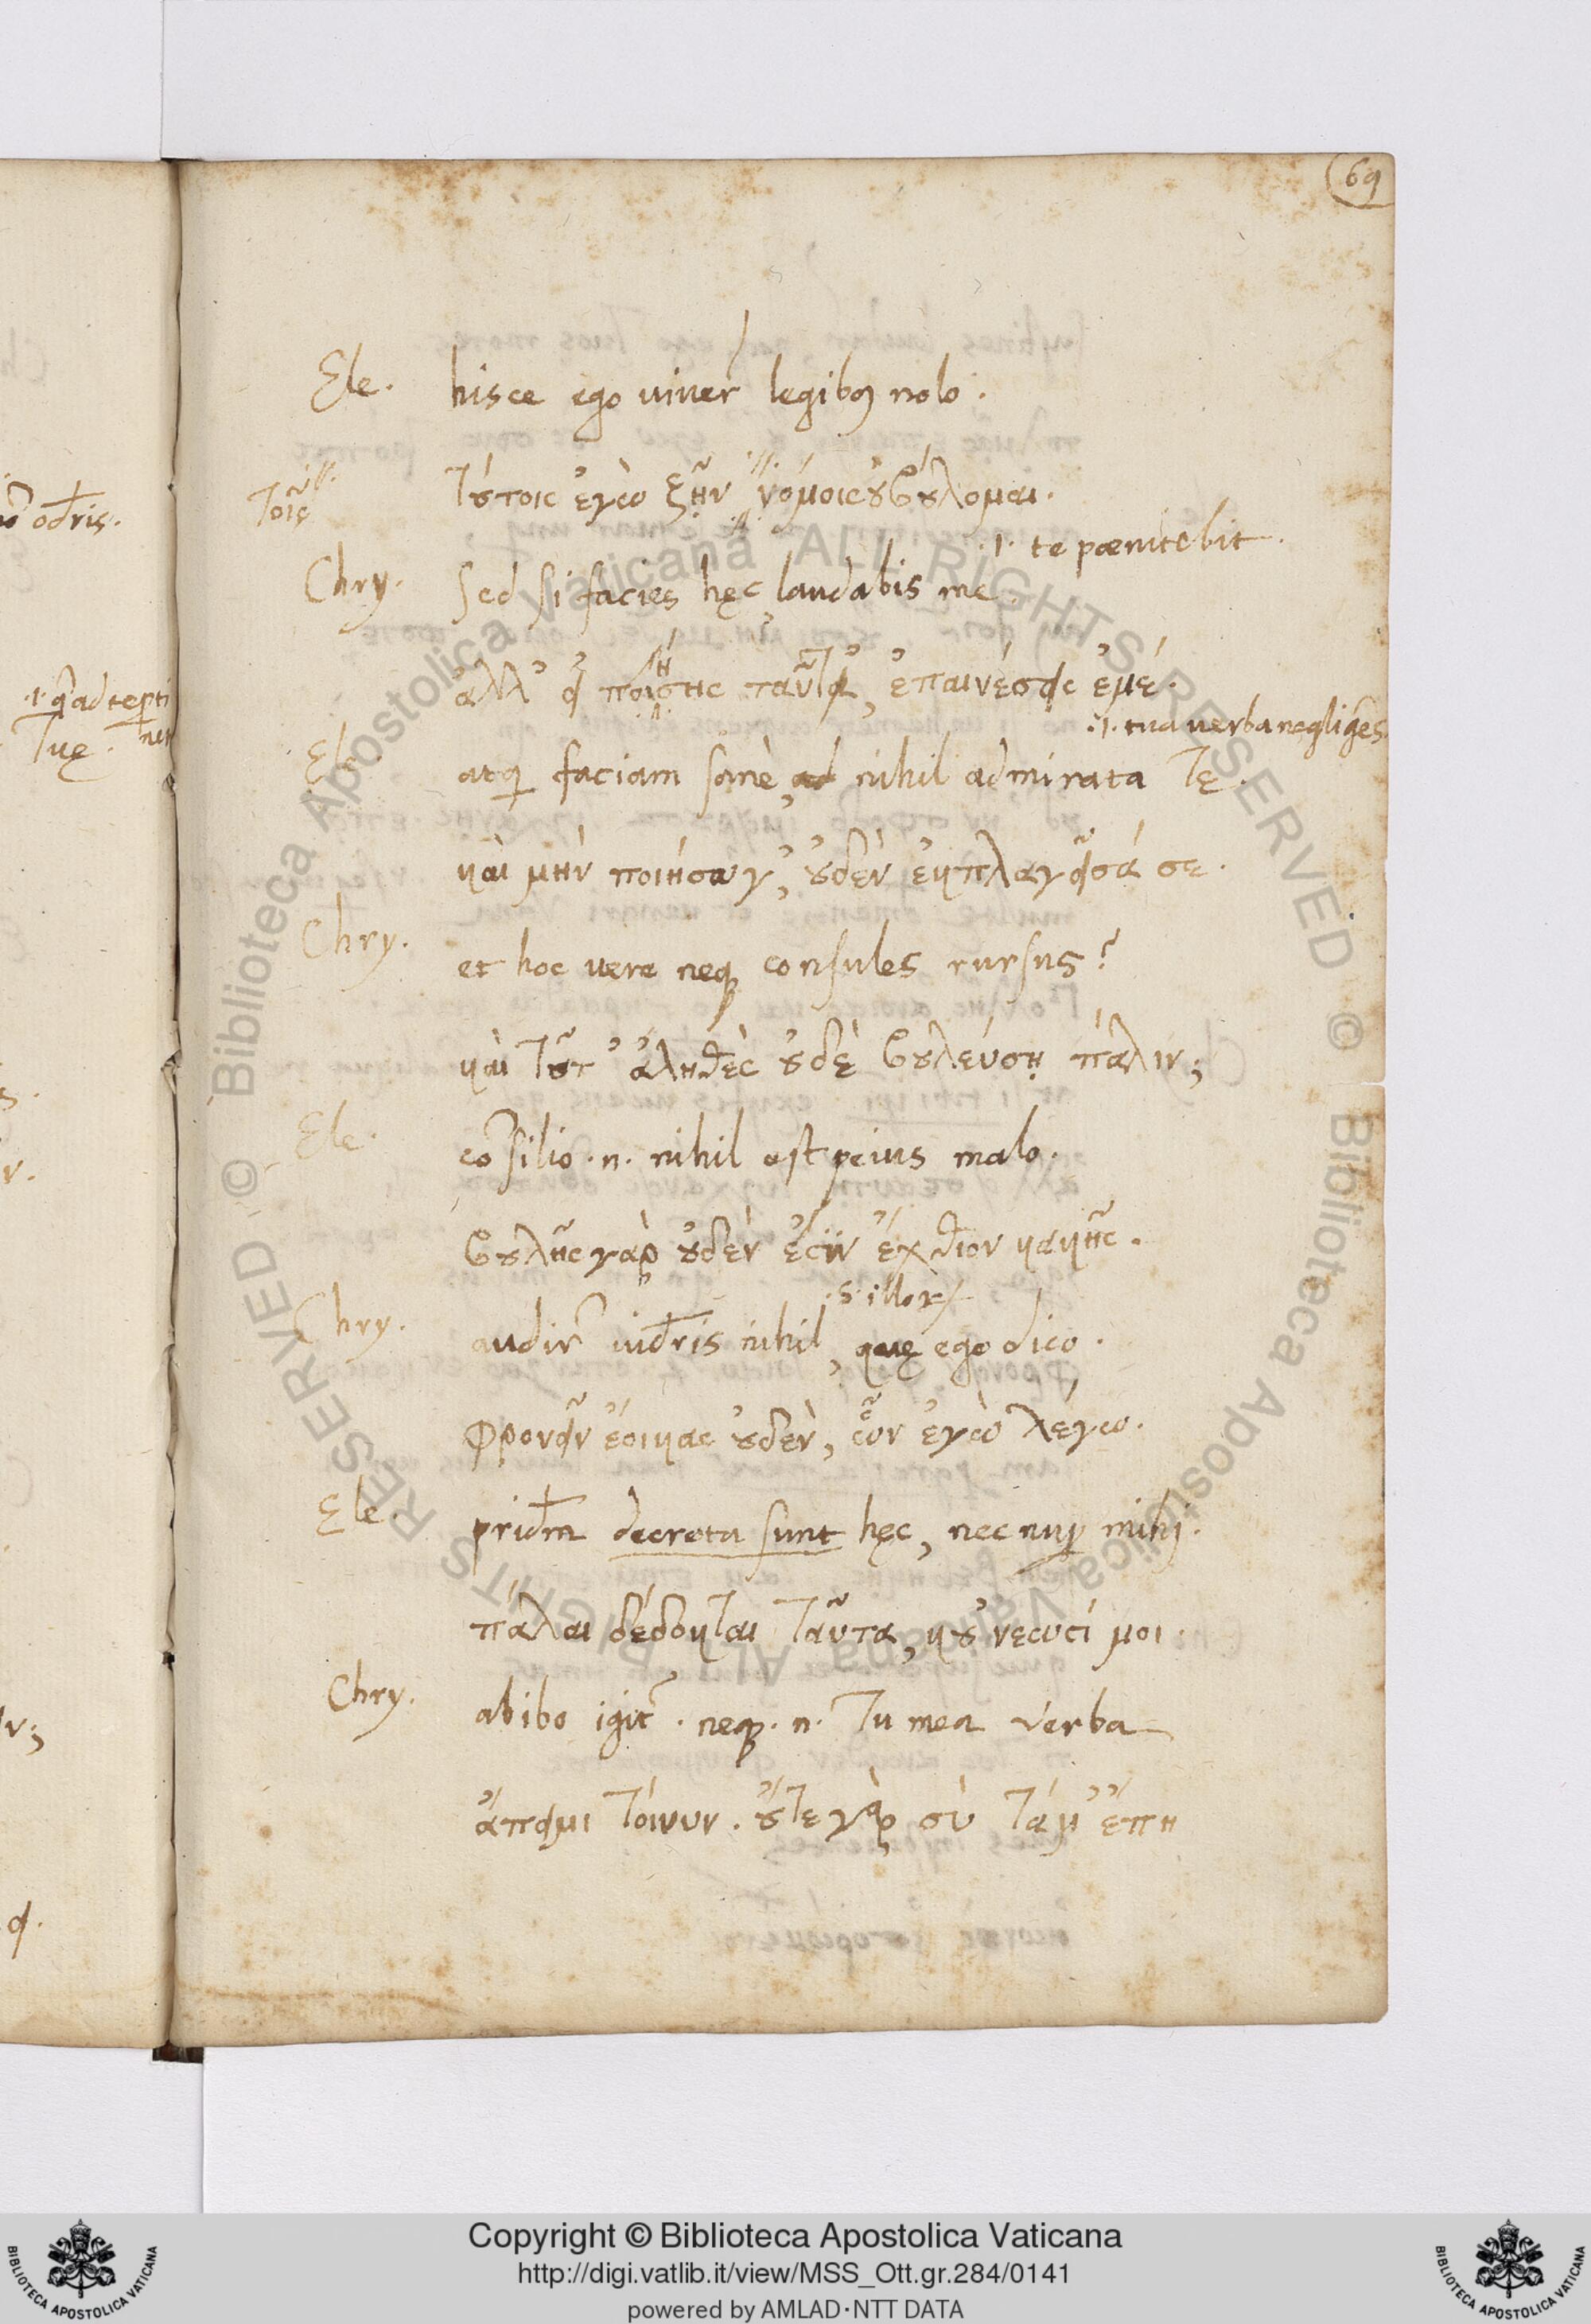 69
Ele. hisce ego viver̃ legibꝰ nolo.
τοῖς
Τούτοις ἐγὼ ζῆν νόμοις οὐ βούλομαι.
.i. te pœnitebit.
Chry. Sed si facies hęc, laudabis me.
ἀλλ' εἰ ποιήσης ταῦτα, ἐπαινέσεις ἐμέ.
.i. tua verba negligẽs
Ele. atq faciam sanè, nihil admirata te.
καὶ μὴν ποιήσω γ', οὐδὲν ἐκπλαγεῖσά σε.
Chry. et hoc vere neq consules rursus?
καὶ τοῦτ' ἀληθὲς οὐδὲ βουλεύσῃ πάλιν;
Ele. cõsilio .n. nihil est peius malo.
βουλῆς γὰρ οὐδὲν ἐστὶν ἔχθιον κακῆς.
.s. illorꝝ
Chry. audir̃ vid̃ris nihil, quę ego dico.
φρονεῖν ἔοικας οὐδὲν, ὧν ἐγὼ λέγω.
Ele. prid̃m decreta sunt hęc, nec nup mihi.
πάλαι δέδοκται ταῦτα, κοὐ νεωστί μοι.
Chry. abibo igit̃. neq .n. tu mea verba
ἄπειμι τοίνυν. οὔτε γὰρ σὺ τἄμ' ἔπη
Copyright © Biblioteca Apostolica Vaticana
http://digi.vatlib.it/view/MSS_Ott.gr.284/0141
powered by AMLAD·NTT DATA
BIBLIOTECA APOSTOLICA VATICANA
BIBLIOTECA APOSTOLICA VATICANA
© Biblioteca Apostolica Vaticana ALL RIGHTS RESERVED
© Biblioteca Apostolica Vaticana ALL RIGHTS RESERVED